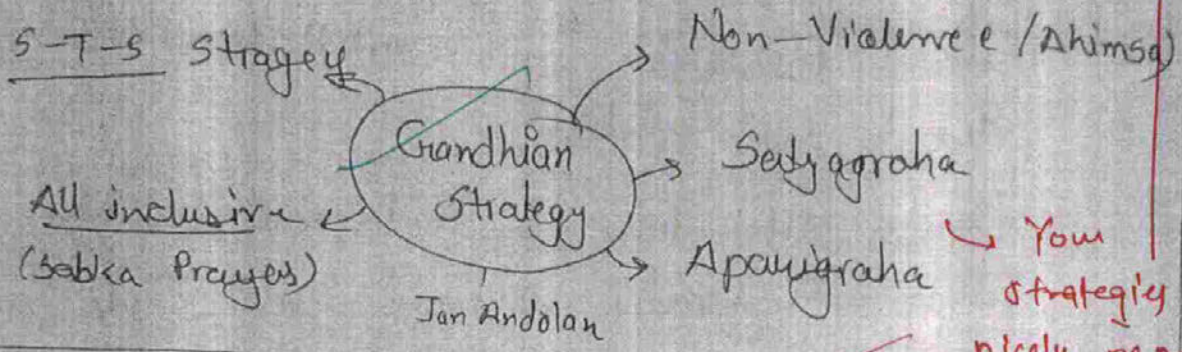 S-T-S Stragey
Non-Violence / Ahimsa)
Gandhian
Strategy
Satyagraha
All inclusive
(Sabka Prayas)
Aparigraha
Jan Andolan
You
strategies
nicely